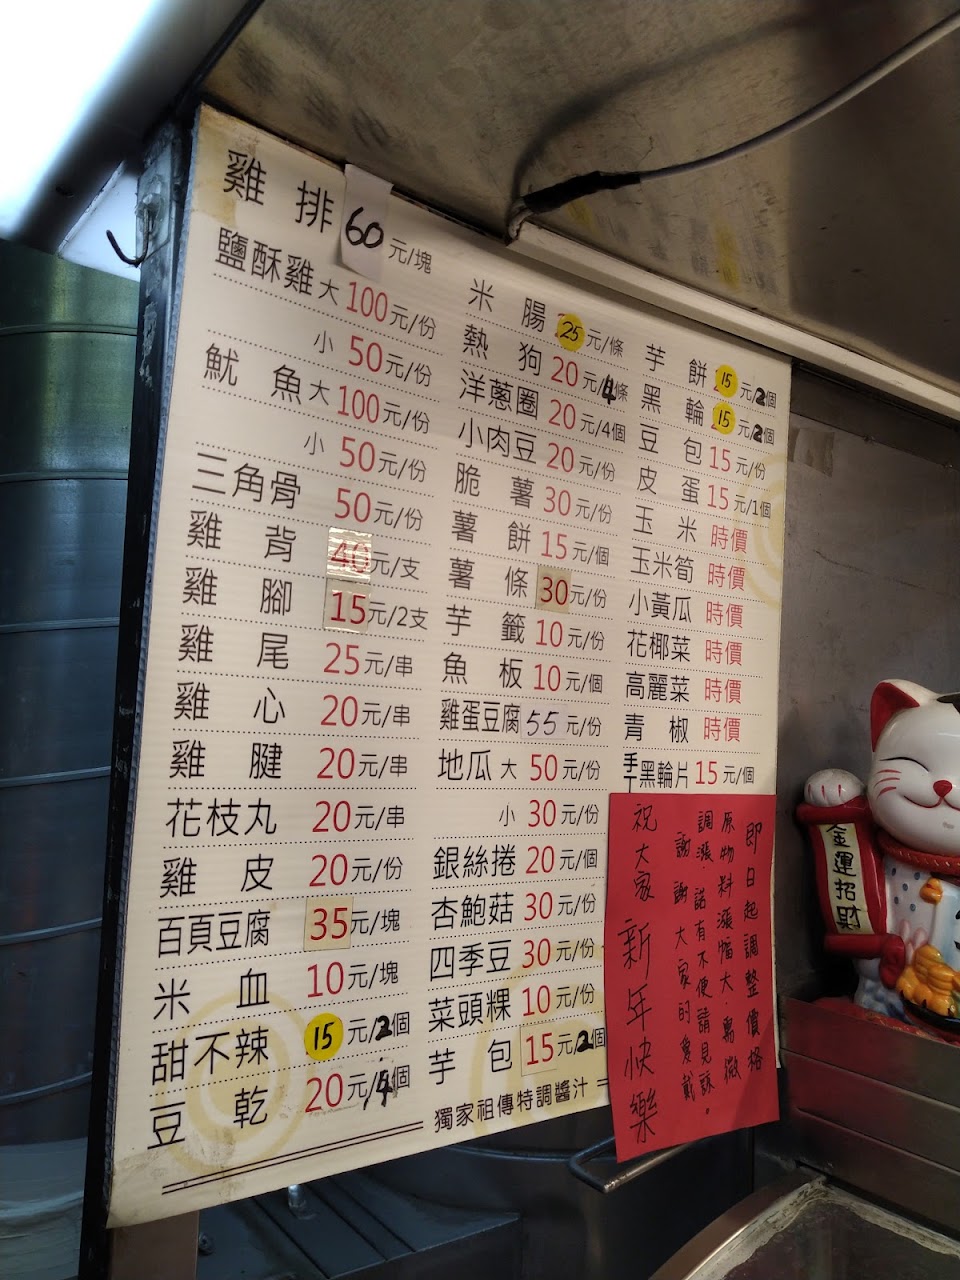 雞排 60 元/塊
鹽酥雞 大 100元/份
小 50元/份
魷魚 大 100元/份
小 50元/份
三角骨 50元/份
雞背 40元/支
雞腳 15元/2支
雞尾 25元/串
雞心 20元/串
雞腱 20元/串
花枝丸 20元/串
雞皮 20元/份
百頁豆腐 35元/塊
米血 10元/塊
甜不辣 15元/2個
豆乾 20元/4個
米腸 25元/條
熱狗 20元/4條
洋蔥圈 20元/4個
小肉豆 20元/份
脆薯 30元/份
薯餅 15元/個
薯條 30元/份
芋籤 10元/份
魚板 10元/個
雞蛋豆腐 55元/份
地瓜 大 50元/份
小 30元/份
銀絲捲 20元/個
杏鮑菇 30元/份
四季豆 30元/份
菜頭粿 10元/份
芋包 15元/2個
獨家祖傳特調醬汁
芋餅 15元/2個
黑輪 15元/2個
豆包 15元/份
皮蛋 15元/1個
玉米 時價
玉米筍 時價
小黃瓜 時價
花椰菜 時價
高麗菜 時價
青椒 時價
手工黑輪片 15元/個
即日起調整價格
原物料漲幅大,萬物微
調漲,諾有不便請見諒。
謝謝大家的愛戴
祝大家新年快樂
金運招財